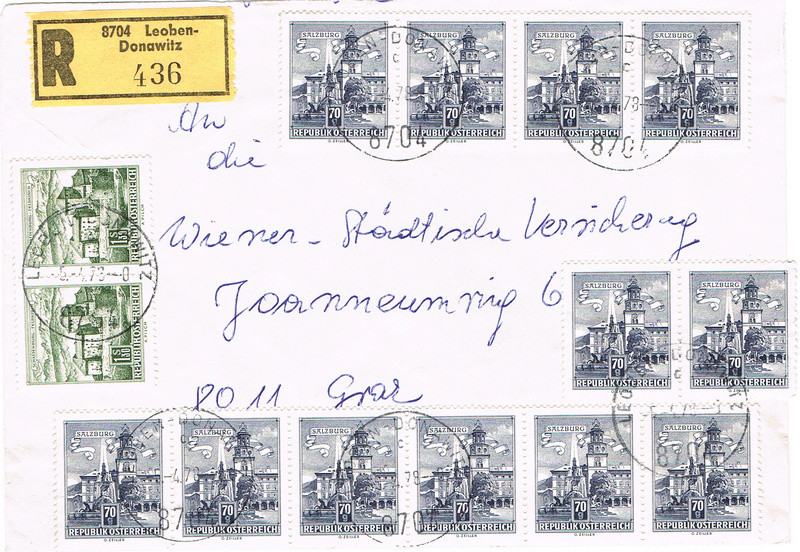 R
8704 Leoben-
Donawitz
436
SALZBURG SALZBURG SALZBURG SALZBURG
70 g 70 g 70 g 70 g
REPUBLIK ÖSTERREICH REPUBLIK ÖSTERREICH REPUBLIK ÖSTERREICH REPUBLIK ÖSTERREICH
O. ZEILLER O. ZEILLER O. ZEILLER O. ZEILLER
8704 8704
An
die
Wiener-Städtische Versicherung
Joanneumring 6
8011 Graz
REPUBLIK ÖSTERREICH
REPUBLIK ÖSTERREICH
SALZBURG SALZBURG
70 g 70 g
REPUBLIK ÖSTERREICH REPUBLIK ÖSTERREICH
8704
SALZBURG SALZBURG SALZBURG SALZBURG SALZBURG SALZBURG
70 g 70 g 70 g 70 g 70 g 70 g
REPUBLIK ÖSTERREICH REPUBLIK ÖSTERREICH REPUBLIK ÖSTERREICH REPUBLIK ÖSTERREICH REPUBLIK ÖSTERREICH REPUBLIK ÖSTERREICH
O. ZEILLER O. ZEILLER O. ZEILLER O. ZEILLER O. ZEILLER O. ZEILLER